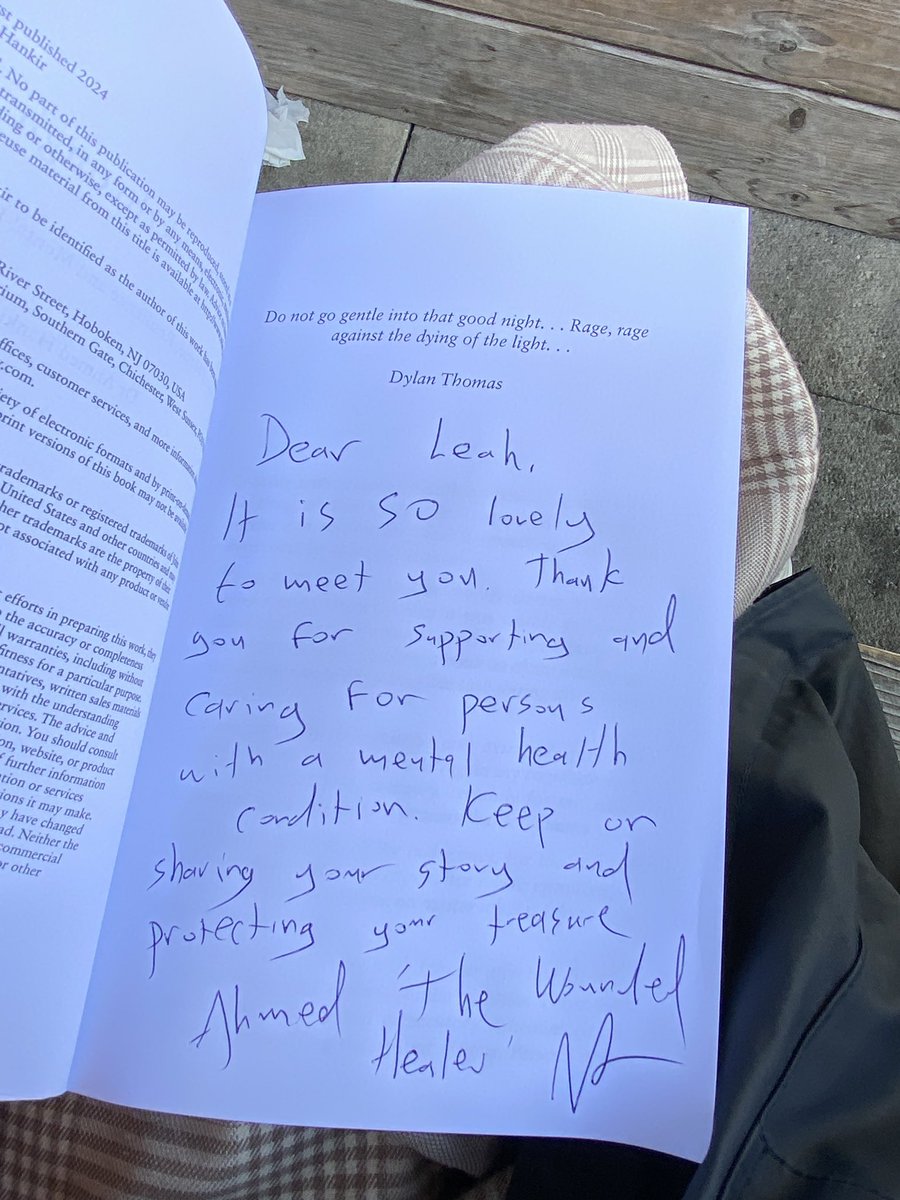 st published 2024
Hankir
. No part of this publication may be reproduced,
transmitted, in any form or by any means,
ding or otherwise, except as permitted by law.
euse material from this title is available at
ir to be identified as the author of this work has
River Street, Hoboken, NJ 07030, USA
rium, Southern Gate, Chichester, West Sussex,
ffices, customer services, and more information
y.com.
iety of electronic formats and by
print versions of this book may not be
rademarks or registered trademarks of
United States and other countries and
her trademarks are the property of
ot associated with any product or
efforts in preparing this work, they
o the accuracy or completeness
l warranties, including without
fitness for a particular purpose.
ntatives, written sales materials
with the understanding
ervices. The advice and
ion. You should consult
on, website, or product
f further information
ation or services
ions it may make.
y have changed
ad. Neither the
commercial
or other
Do not go gentle into that good night. . . Rage, rage
against the dying of the light. . .
Dylan Thomas
Dear Leah,
It is SO lovely
to meet you. Thank
you for supporting and
caring for persons
with a mental health
condition. Keep on
sharing your story and
protecting your treasure
Ahmed 'The Wounded
Healer'